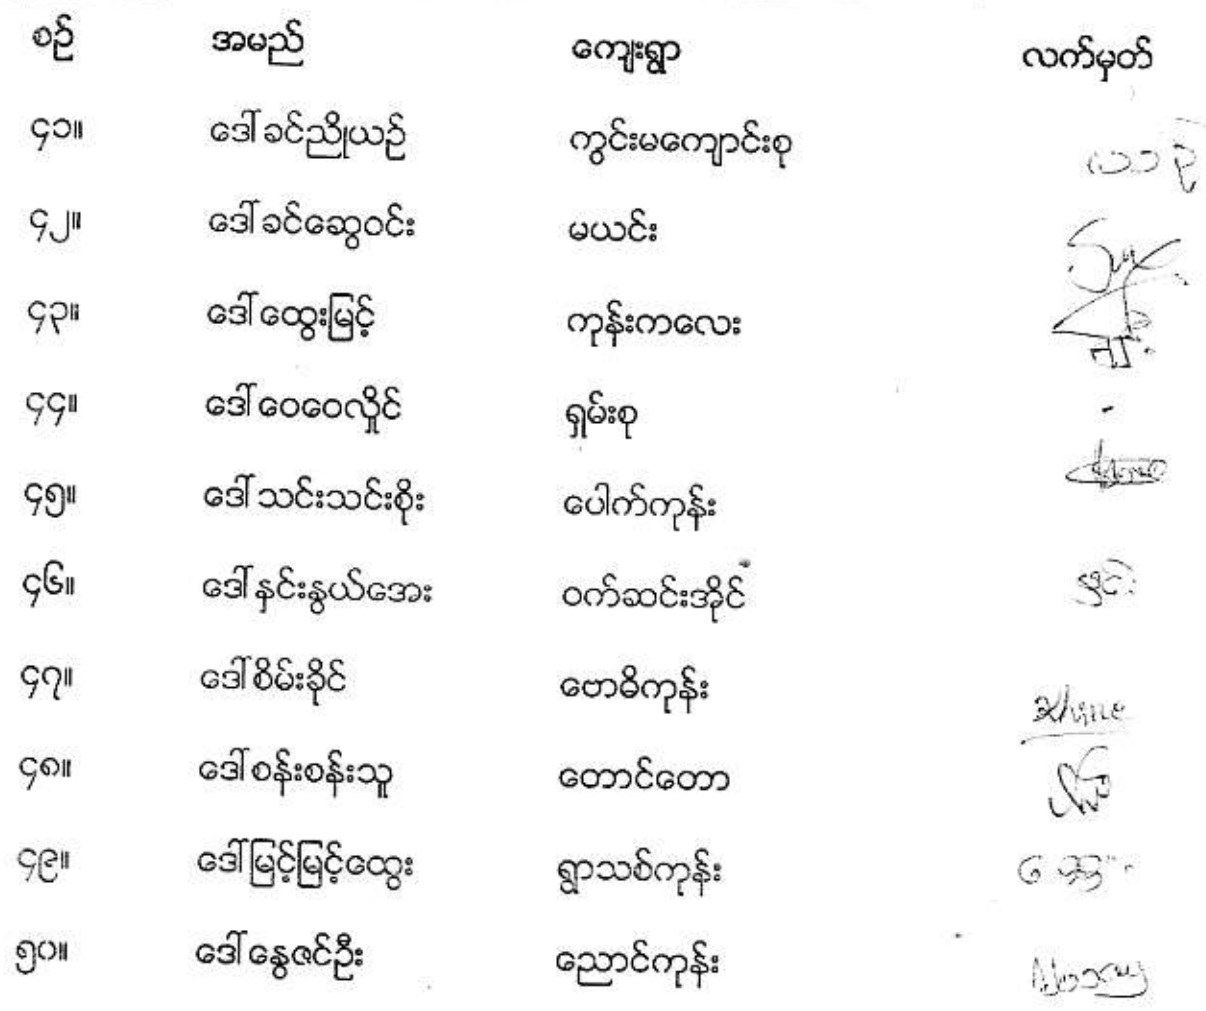 စဉ် အမည် ကျေးရွာ လက်မှတ်
၄၁။ ဒေါ်ခင်ညိုယဉ် ကွင်းမကျောင်းစု
၄၂။ ဒေါ်ခင်ဆွေဝင်း မယင်း
၄၃။ ဒေါ်ထွေးမြင့် ကုန်းကလေး
၄၄။ ဒေါ်ဝေဝေလှိုင် ရှမ်းစု
၄၅။ ဒေါ်သင်းသင်းစိုး ပေါက်ကုန်း
၄၆။ ဒေါ်နှင်းနွယ်အေး ဝက်ဆင်းအိုင်
၄၇။ ဒေါ်စိမ်းခိုင် ဗောဓိကုန်း
၄၈။ ဒေါ်စန်းစန်းသူ တောင်တော
၄၉။ ဒေါ်မြင့်မြင့်ထွေး ရွာသစ်ကုန်း
၅၀။ ဒေါ်နွေဇင်ဦး ညောင်ကုန်း